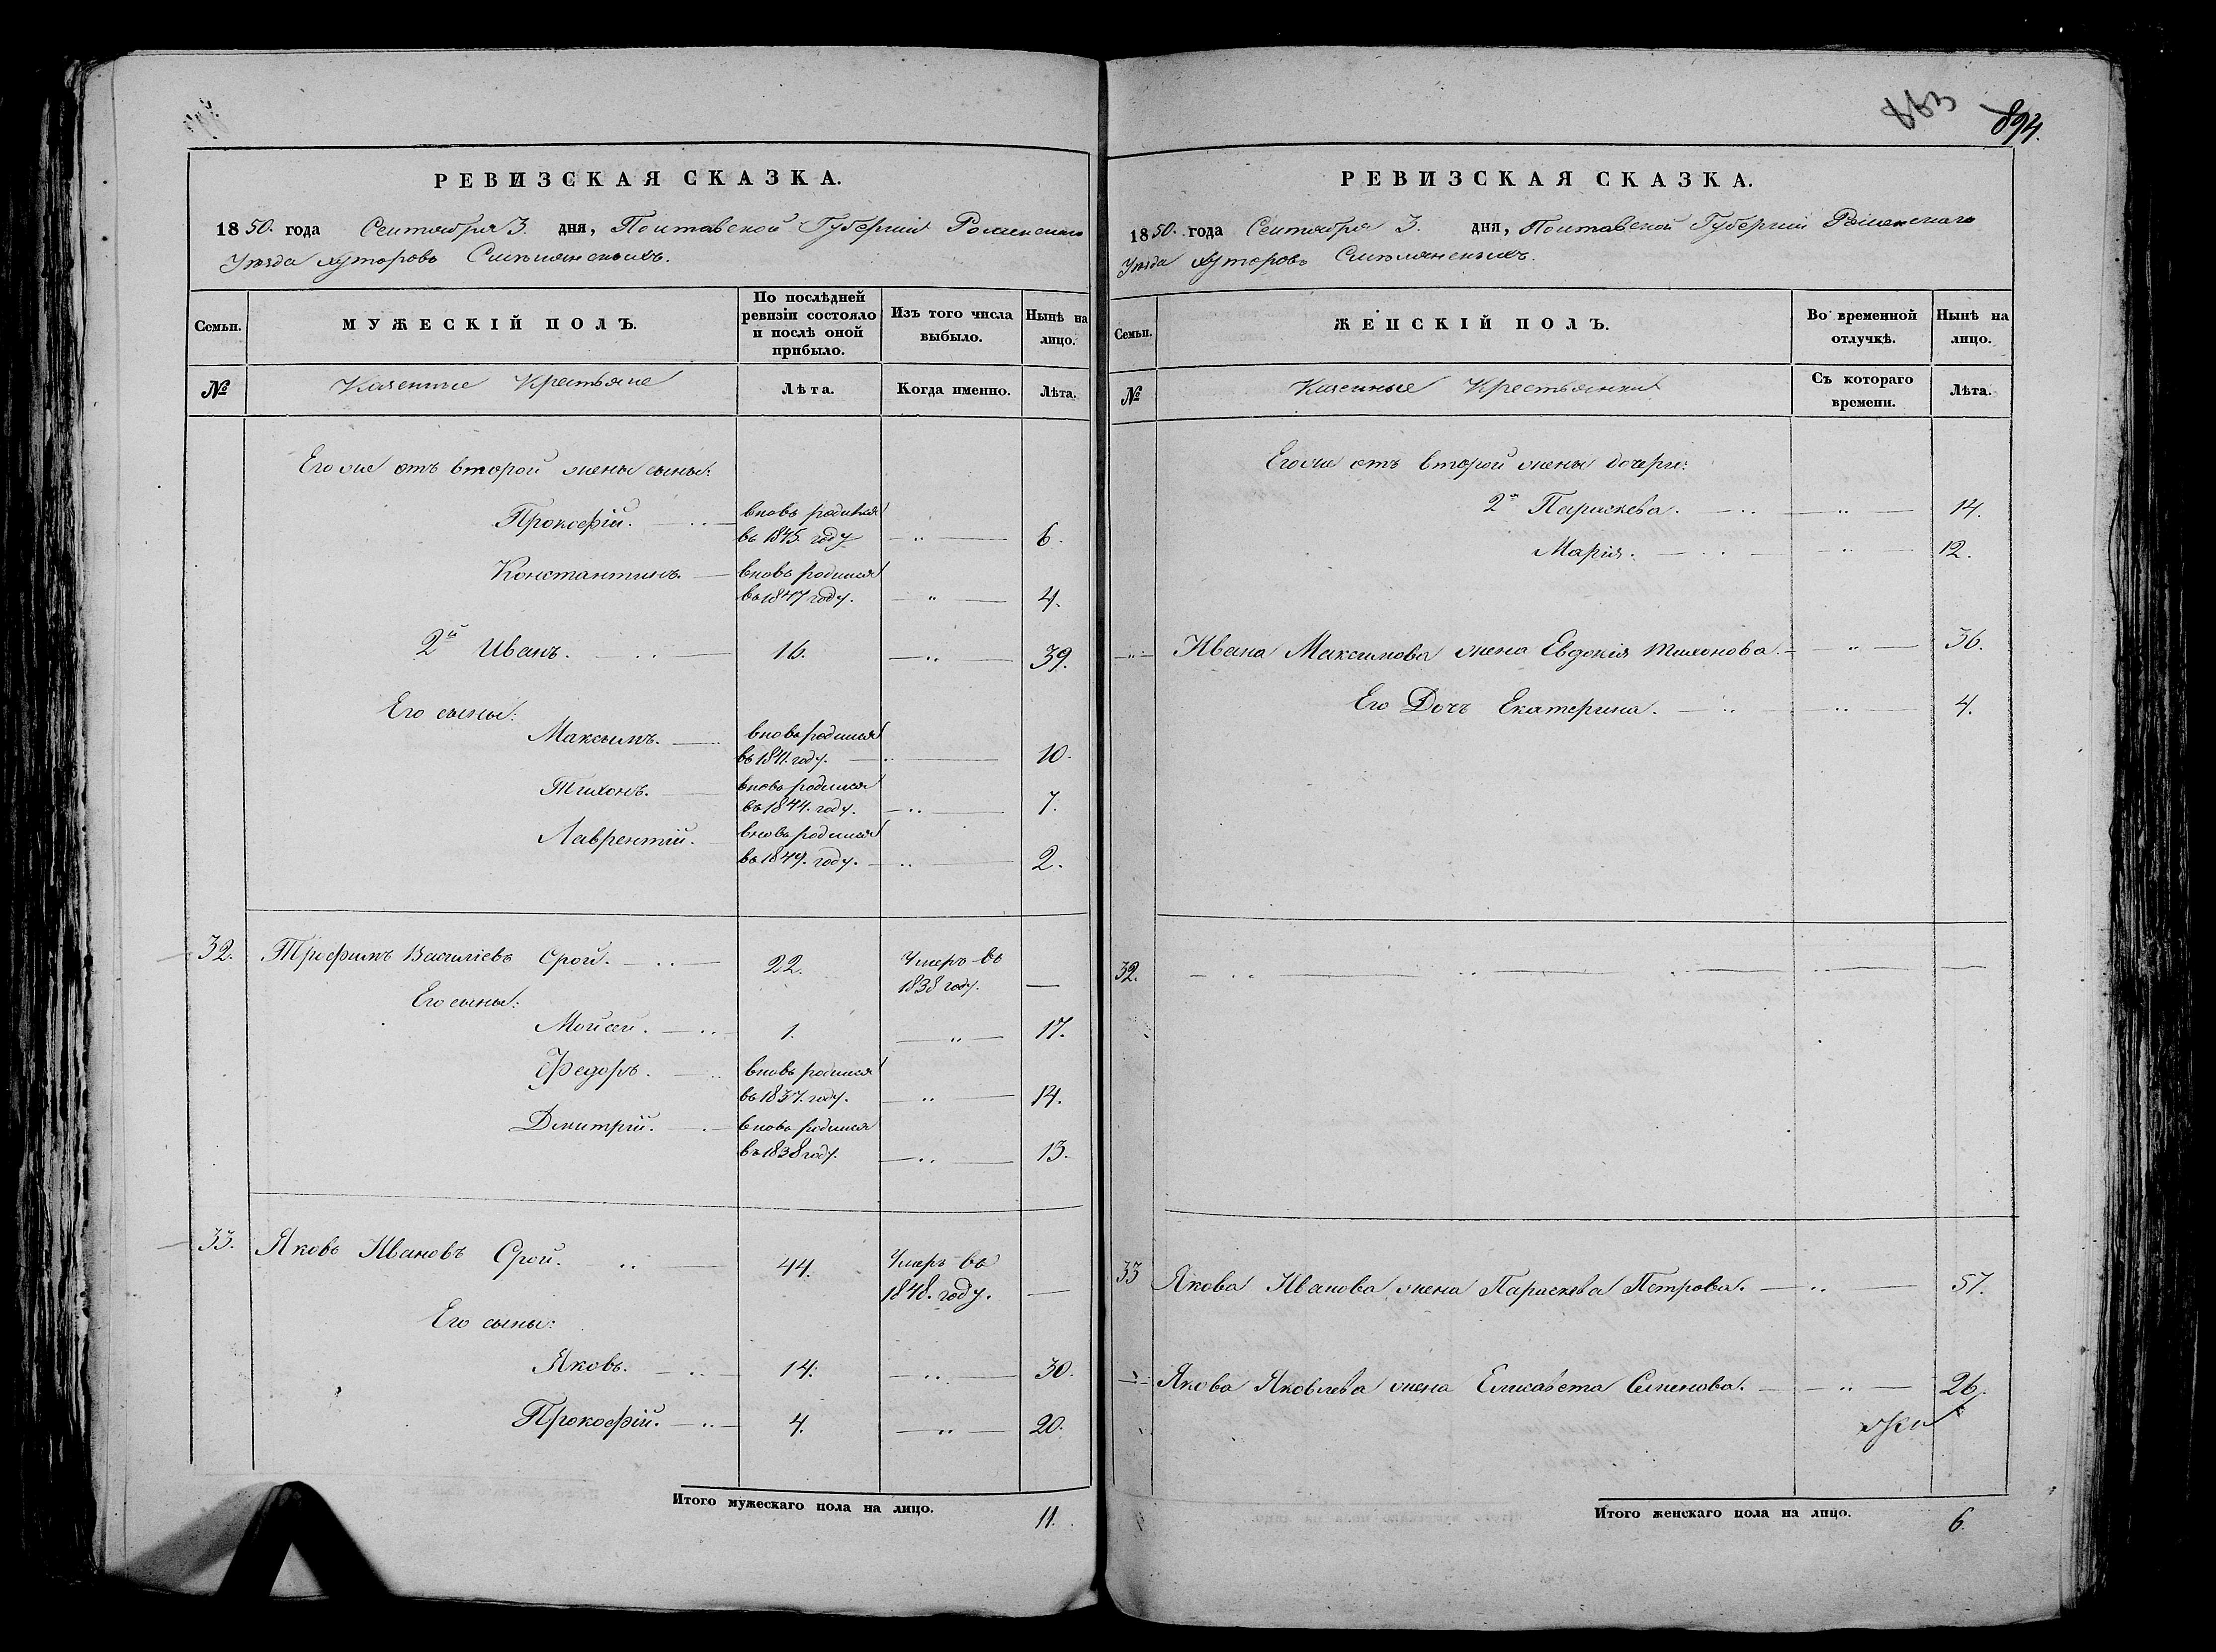 РЕВИЗСКАЯ СКАЗКА.
1850. года Сентября 3. дня, Полтавской Губерніи Роменскаго
Уѣзда хуторовъ
Семьи.
МУЖЕСКІЙ ПОЛЪ.
По послѣдней ревизіи состояло и послѣ оной прибыло.
Изъ того числа выбыло.
Нынѣ на лицо.
№
Казенные Крестьяне
Лѣта.
Когда именно.
Лѣта.
Его же отъ второй жены сыны:
Прокофій. вновь родился
въ 1845. году 6.
Константинъ. вновь родился
въ 1847 году. 4.
2й Иванъ. 16. 39.
Его сыны:
Максимъ. вновь родился
въ 1841. году. 10.
Тихонъ. вновь родился
въ 1844. году. 7.
Лаврентій. вновь родился
въ 1849. году. 2.
32. Трофимъ Василіевъ Срой. 22. Умеръ въ
1838 году.
Его сыны:
Мойсей. 1. 17.
Федоръ. вновь родился
въ 1837. году. 14.
Дмитрій. вновь родился
въ 1838 году. 13.
33. Яковъ Ивановъ Срой. 44. Умеръ въ
1848. году.
Его сыны:
Яковъ. 14. 30.
Прокофій. 4. 20.
Итого мужескаго пола на лицо. 11.
863 894.
РЕВИЗСКАЯ СКАЗКА.
1850. года Сентября 3. дня, Полтавской Губерніи Роменскаго
Уѣзда хуторовъ
Семьи.
ЖЕНСКІЙ ПОЛЪ.
Во временной отлучкѣ.
Нынѣ на лицо.
№
Казенные Крестьянки
Съ котораго времени.
Лѣта.
Его же отъ второй жены дочери:
2я Параскева. 14.
Марія. 12.
Ивана Максимова жена Евдокія Тихонова. 36.
Его Дочь Екатерина. 4.
32.
33 Якова Иванова жена Параскева Петрова. 57.
Якова Яковлева жена Елисавета Семенова. 26.
Итого женскаго пола на лицо. 6.